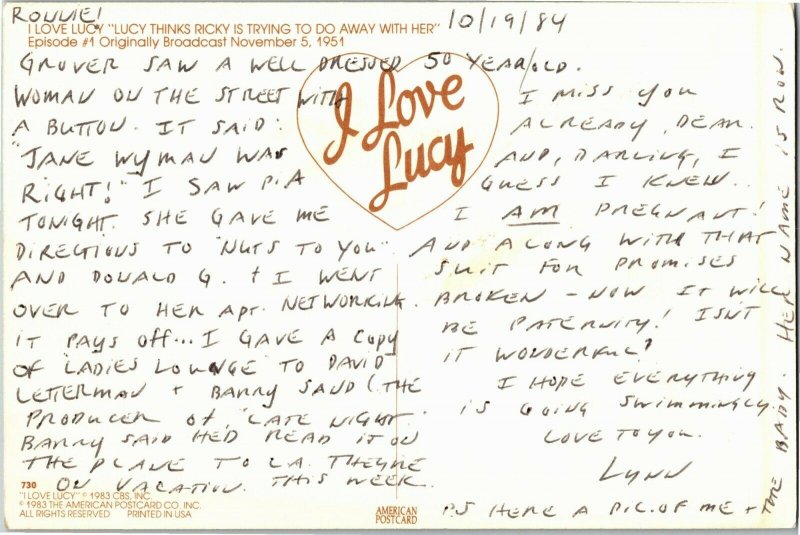 RONNIE!
10/19/84
I LOVE LUCY "LUCY THINKS RICKY IS TRYING TO DO AWAY WITH HER"
Episode #1 Originally Broadcast November 5, 1951
GROVER SAW A WELL DRESSED 50 YEAR/OLD.
WOMAN ON THE STREET WITH
A BUTTON. IT SAID:
"JANE WYMAN WAS
RIGHT!" I SAW PIA
TONIGHT. SHE GAVE ME
DIRECTIONS TO "NUTS TO YOU"
AND DONALD G. + I WENT
OVER TO HER APT. NETWORKING.
IT PAYS OFF... I GAVE A COPY
OF "LADIES LOUNGE" TO DAVID
LETTERMAN + BARRY SAND (THE
PRODUCER OF "LATE NIGHT.
BARRY SAID HED READ IT ON
THE PLANE TO L.A. THEYRE
ON VACATION. THIS WEEK.
I Love
Lucy
I MISS YOU
ALREADY, DEAR.
AND, DARLING, I
GUESS I KNEW..
I AM PREGNANT!
AND ALONG WITH THAT
SUIT FOR PROMISES
BROKEN - NOW IT WILL
BE PATERNITY! ISNT
IT WONDERFUL?
I HOPE EVERYTHING
IS GOING SWIMMINGLY
LOVE TO YOU.
LYNN
PS HERE A PIC. OF ME +
THE BABY. HER NAME IS RON.
730
"I LOVE LUCY" © 1983 CBS, INC.
© 1983 THE AMERICAN POSTCARD CO. INC.
ALL RIGHTS RESERVED PRINTED IN USA
AMERICAN
POSTCARD